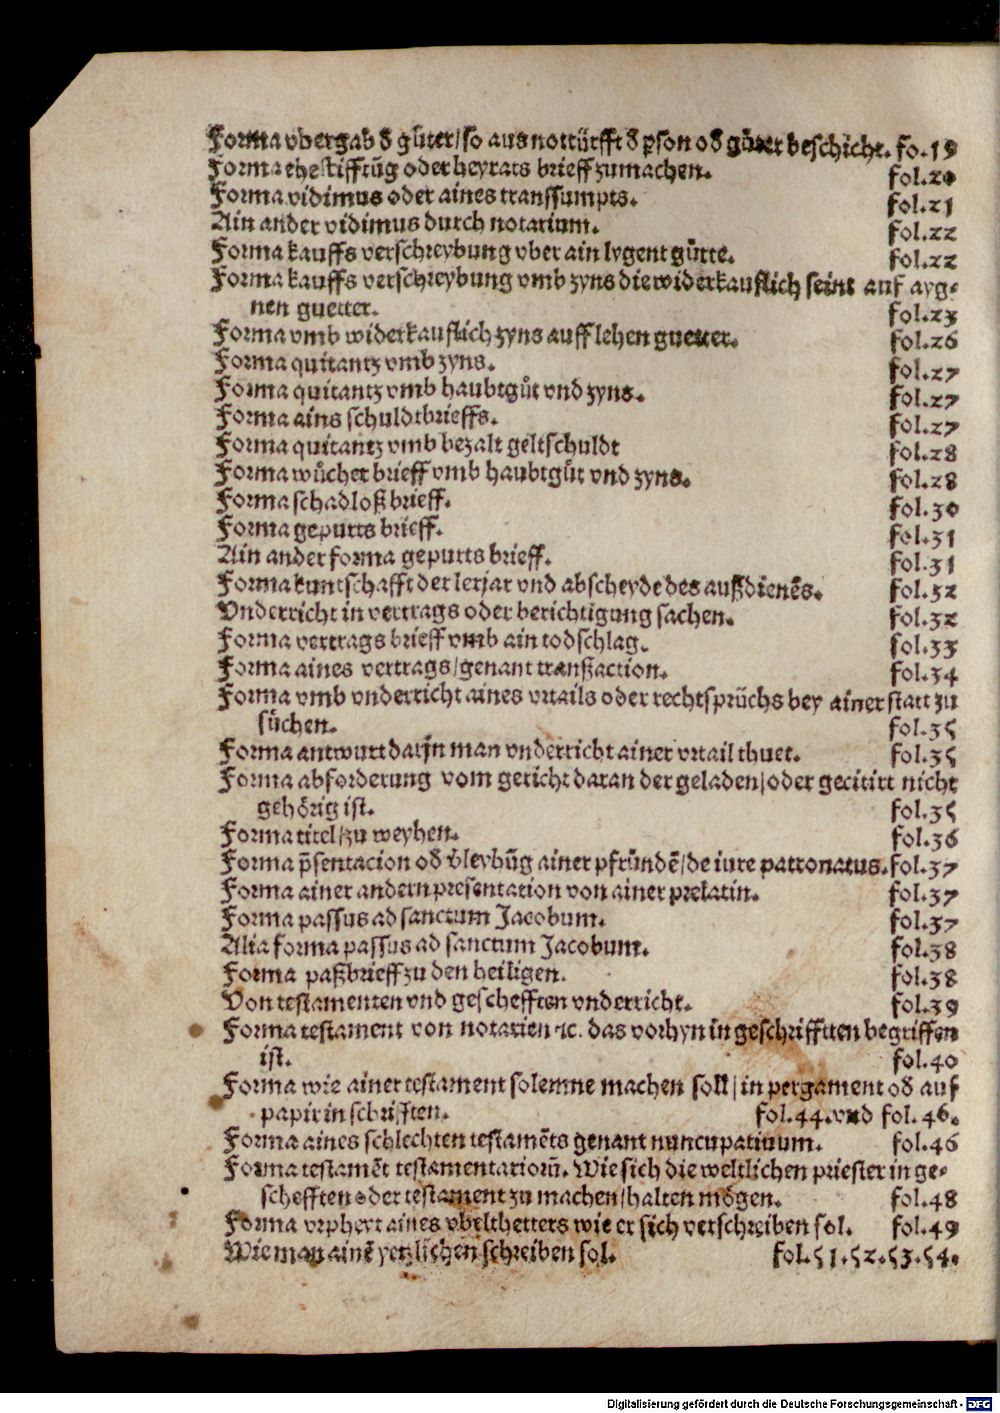 Forma vbergab d̕ gu̍ter/so aus nottürfft d̕ p̱son od̕ gu̍ter beschicht. fo.19
Forma ehestifftūg oder heyrats brieff zumachen. fol.20
Forma vidimus oder aines transsumpts. fol.21
Ain ander vidimus durch notarium. fol.22
Forma kauffs verschreybung vber ain lygent gu̍tte. fol.22
Forma kauffs verschreybung vmb zyns die widerkauflich seint auf ayg-
nen guetter. fol.23
Forma vmb widerkauflich zyns auff lehen guetter. fol.26
Forma quitantz vmb zyns. fol.27
Forma quitantz vmb haubtgůt vnd zyns. fol.27
Forma ains schuldtbrieffs. fol.27
Forma quitantz vmb bezalt geltschuldt fol.28
Forma wůcher brieff vmb haubtgůt vnd zyns. fol.28
Forma schadloß brieff. fol.30
Forma gepurts brieff. fol.31
Ain ander forma gepurts brieff. fol.31
Forma kuntschafft der lerjar vnd abscheyde des außdienēs. fol.32
Vnderricht in vertrags oder berichtigung sachen. fol.32
Forma vertrags brieff vmb ain todschlag. fol.33
Forma aines vertrags/genant transzaction. fol.34
Forma vmb vnderricht aines vrtails oder rechtsprüchs bey ainer statt zu
sůchen. fol.35
Forma antwurt darjn man vnderricht ainer vrtail thuet. fol.35
Forma abforderung vom gericht daran der geladen/oder gecitirt nicht
gehörig ist. fol.35
Forma titel/zu weyhen. fol.36
Forma p̄sentacion od̕ v̕leybūg ainer pfründē/de iure patronatus. fol.37
Forma ainer andern presentation von ainer prelatin. fol.37
Forma passus ad sanctum Jacobum. fol.37
Alia forma passus ad sanctum Jacobum. fol.38
Forma paßbrieff zu den heiligen. fol.38
Von testamenten vnd geschefften vnderricht. fol.39
Forma testament von notarien ⁊c. das vorhyn in geschrifften begriffen
ist. fol.40
Forma wie ainer testament solemne machen soll/in pergament od̕ auf
papir in schrifften. fol.44.vnd fol.46.
Forma aines schlechten testamēts genant nuncupatiuum. fol.46
Forma testamēt testamentariorū. Wie sich die weltlichen priester in ge-
schefften oder testament zu machen/halten mögen. fol.48
Forma vrpheyt aines vbelthetters wie er sich verschreiben sol. fol.49
Wie man ainē yetzlichen schreiben sol. fol.51.52.53.54.
Digitalisierung gefördert durch die Deutsche Forschungsgemeinschaft - DFG